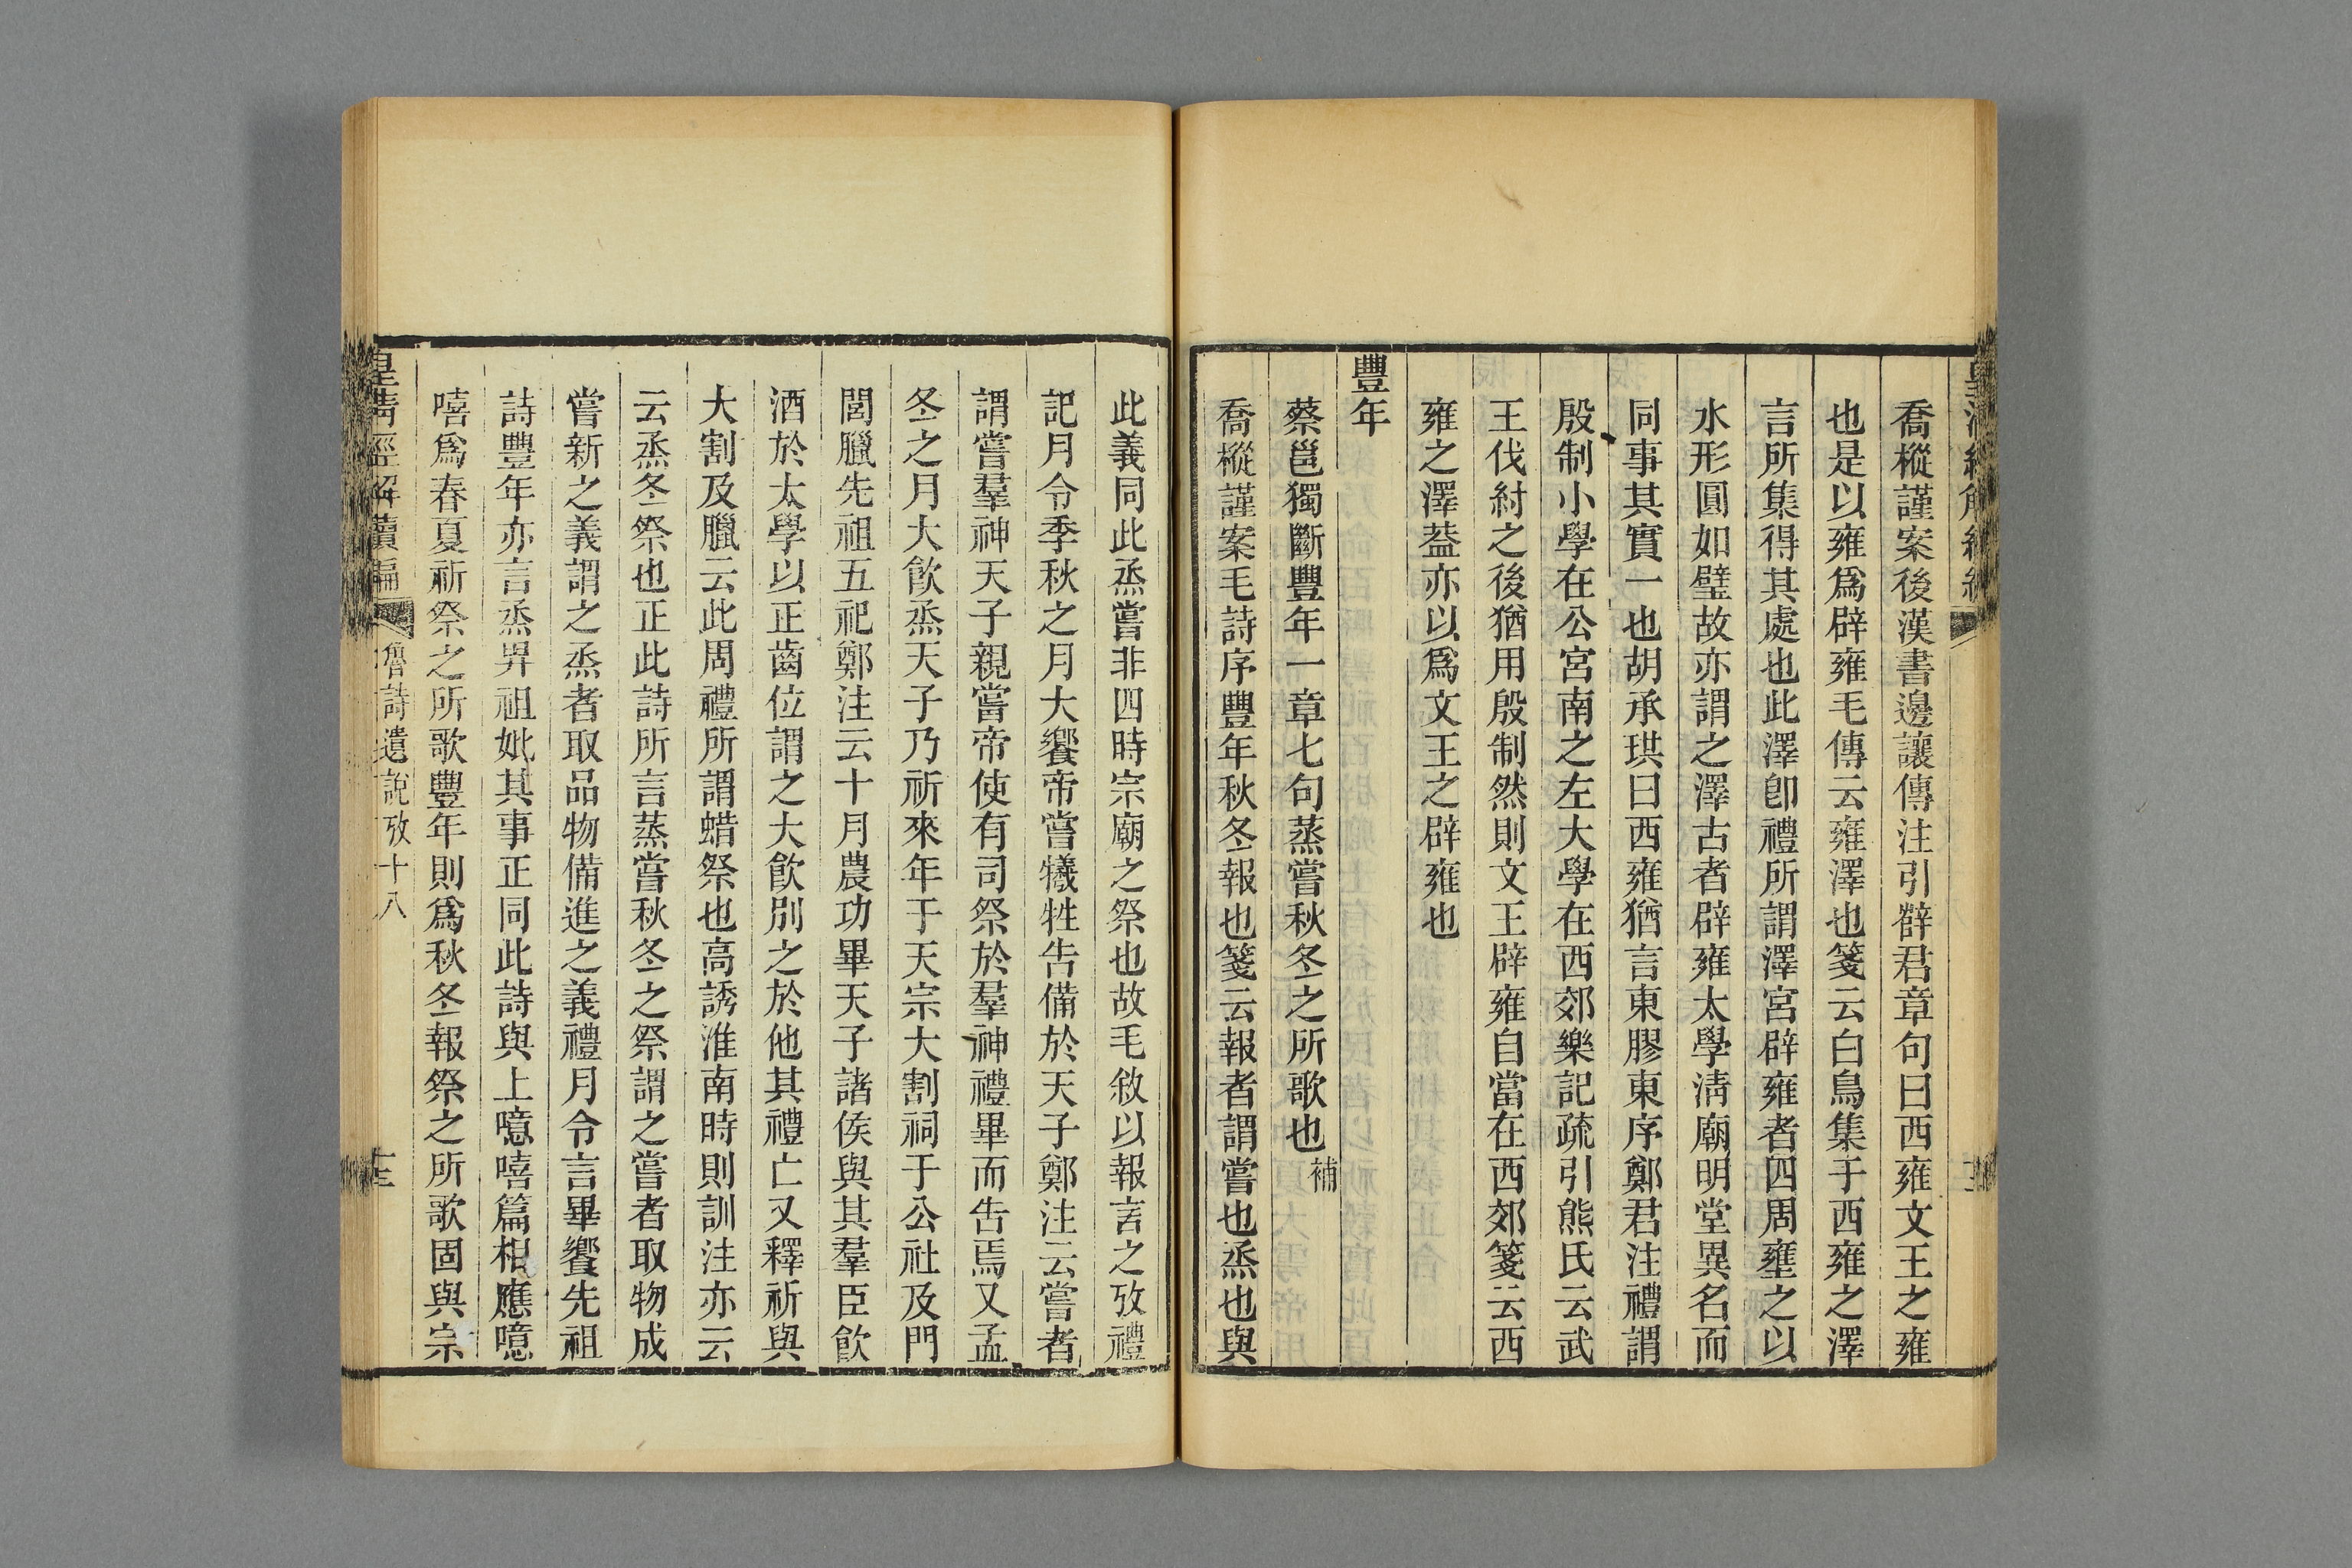 喬樅謹案後漢書邊讓傳注引辥君章句曰西雍文王之雍
也是以雍爲辟雍毛傳云雍澤也箋云白鳥集于西雍之澤
言所集得其處也此澤卽禮所謂澤宮辟雍者四周壅之以
水形圓如璧故亦謂之澤古者辟雍太學淸廟明堂異名而
同事其實一也胡承珙曰西雍猶言東膠東序鄭君注禮謂
殷制小學在公宮南之左大學在西郊樂記疏引熊氏云武
王伐紂之後猶用殷制然則文王辟雍自當在西郊箋云西
雍之澤葢亦以爲文王之辟雍也
豐年
蔡邕獨斷豐年一章七句蒸嘗秋冬之所歌也補
喬樅謹案毛詩序豐年秋冬報也箋云報者謂嘗也烝也與
此義同此烝嘗非四時宗廟之祭也故毛敘以報言之攷禮
記月令季秋之月大饗帝嘗犧牲告備於天子鄭注云嘗者
謂嘗羣神天子親嘗帝使有司祭於羣神禮畢而告焉又孟
冬之月大飮烝天子乃祈來年于天宗大割祠于公社及門
閭臘先祖五祀鄭注云十月農功畢天子諸侯與其羣臣飮
酒於太學以正齒位謂之大飮別之於他其禮亡又釋祈與
大割及臘云此周禮所謂蜡祭也高誘淮南時則訓注亦云
云烝冬祭也正此詩所言蒸嘗秋冬之祭謂之嘗者取物成
嘗新之義謂之烝者取品物備進之義禮月令言畢饗先祖
詩豐年亦言烝畀祖妣其事正同此詩與上噫嘻篇相應噫
嘻爲春夏祈祭之所歌豐年則爲秋冬報祭之所歌固與宗
皇淸經解續編
魯詩遺說攷十八